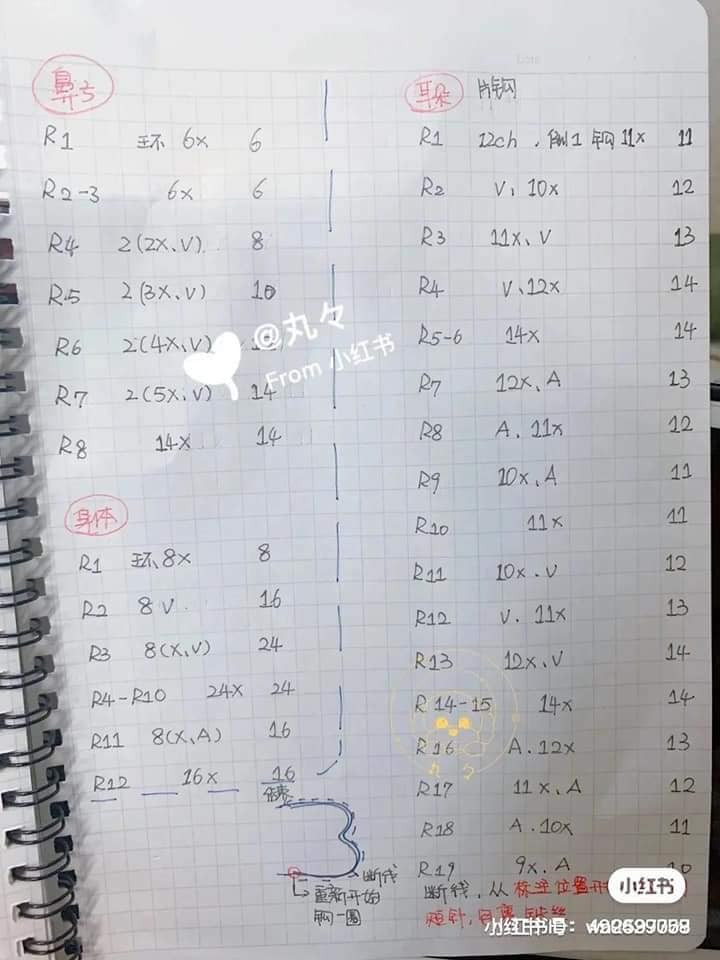 鼻子
R1 环 6x 6
R2-3 6x 6
R4 2(2x、V) 8
R5 2(3x、V) 10
R6 2(4x、V)
R7 2(5x、V) 14
R8 14x 14
@丸々
From 小红书
身体
R1 环 8x 8
R2 8V 16
R3 8(x、V) 24
R4-R10 24x 24
R11 8(x、A) 16
R12 16x 16
断线
重新开始
钩一圈
耳朵 片钩
R1 12ch,倒1钩11x 11
R2 V、10x 12
R3 11x、V 13
R4 V、12x 14
R5-6 14x 14
R7 12x、A 13
R8 A、11x 12
R9 10x、A 11
R10 11x 11
R11 10x、V 12
R12 V、11x 13
R13 12x、V 14
R14-15 14x 14
R16 A、12x 13
丸々
R17 11x、A 12
R18 A、10x 11
R19 9x、A
断线,从标注位置开
短针,
小红书
小红书号: